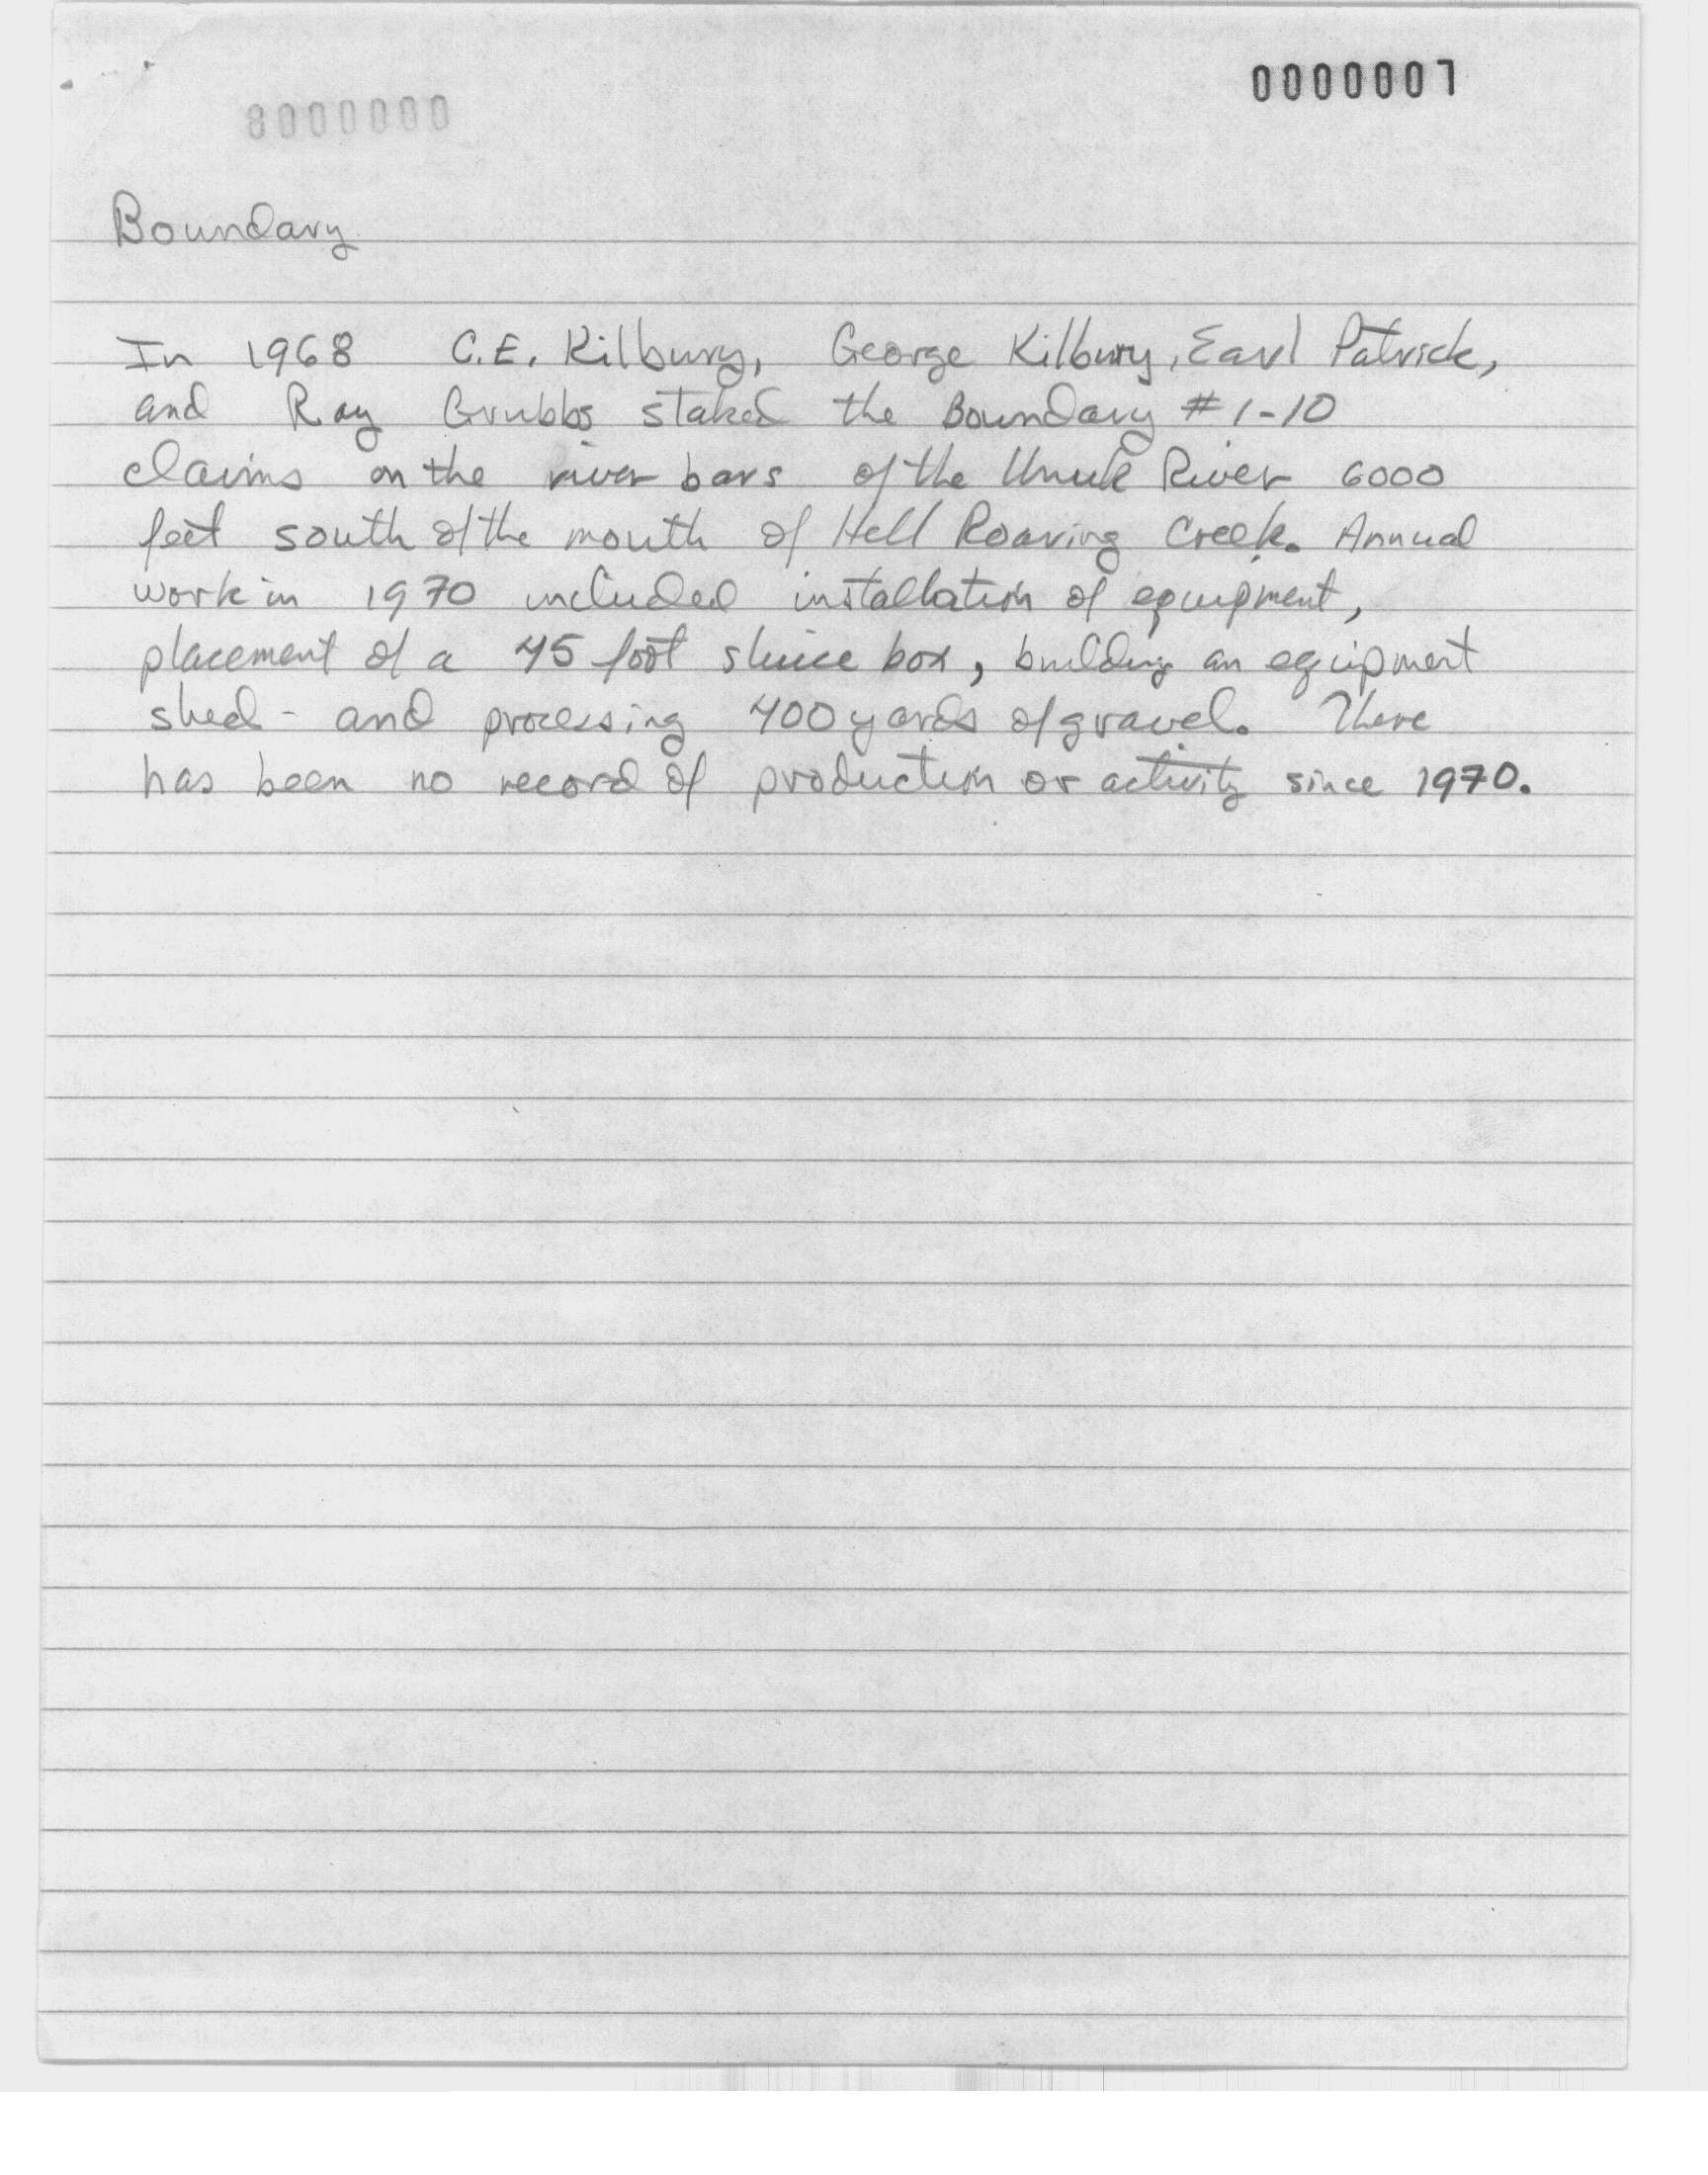 0000007
Boundary
In 1968 C.E. Kilbury, George Kilbury, Earl Patrick,
and Ray Grubbs staked the Boundary #1-10
claims on the river bars of the Unuk River 6000
feet south of the mouth of Hell Roaring Creek. Annual
work in 1970 included installation of equipment,
placement of a 45 foot sluice box, building an equipment
shed - and processing 400 yards of gravel. There
has been no record of production or activity since 1970.